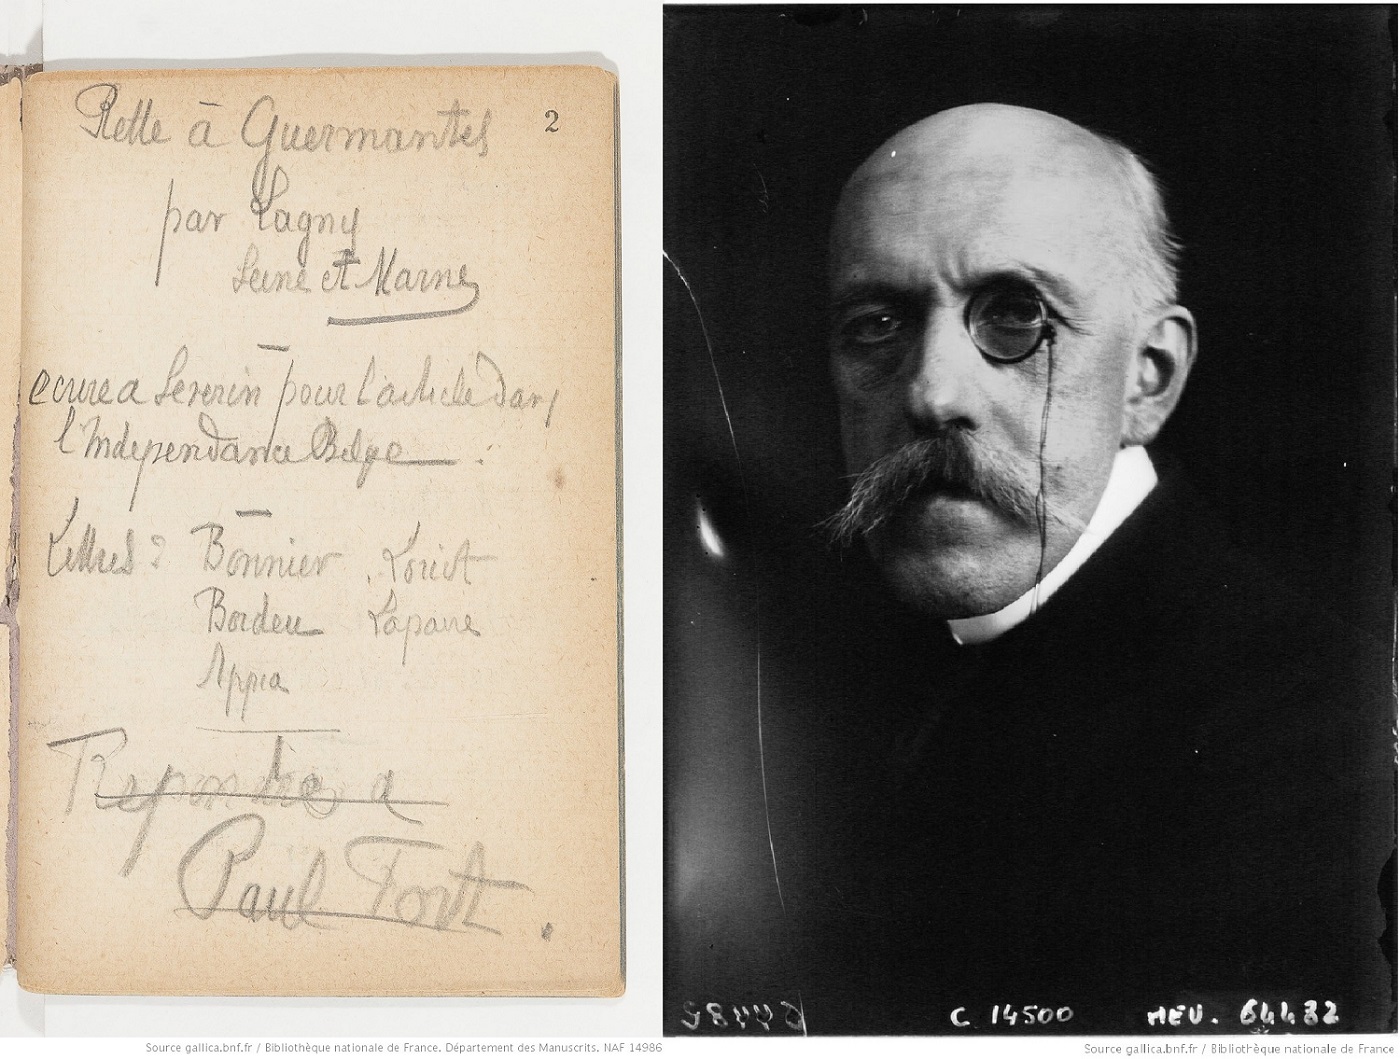 Rette à Guermantes
2
par Lagny
Seine et Marne
ecrire a Severin pour l'article dans
l'Independance Belge
Lettres : Bonnier Louis
Bordeu
Appia
Repondre a
Paul Fort.
58442 C 14500 MEU. 64432
Source gallica.bnf.fr / Bibliothèque nationale de France. Département des Manuscrits. NAF 14986
Source gallica.bnf.fr / Bibliothèque nationale de France